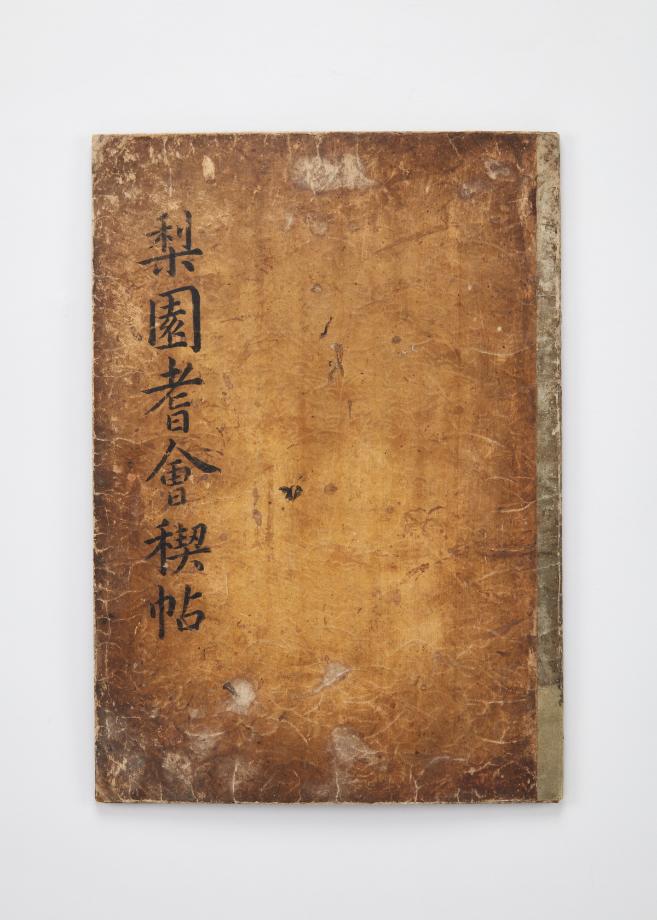 梨園耆會稧帖